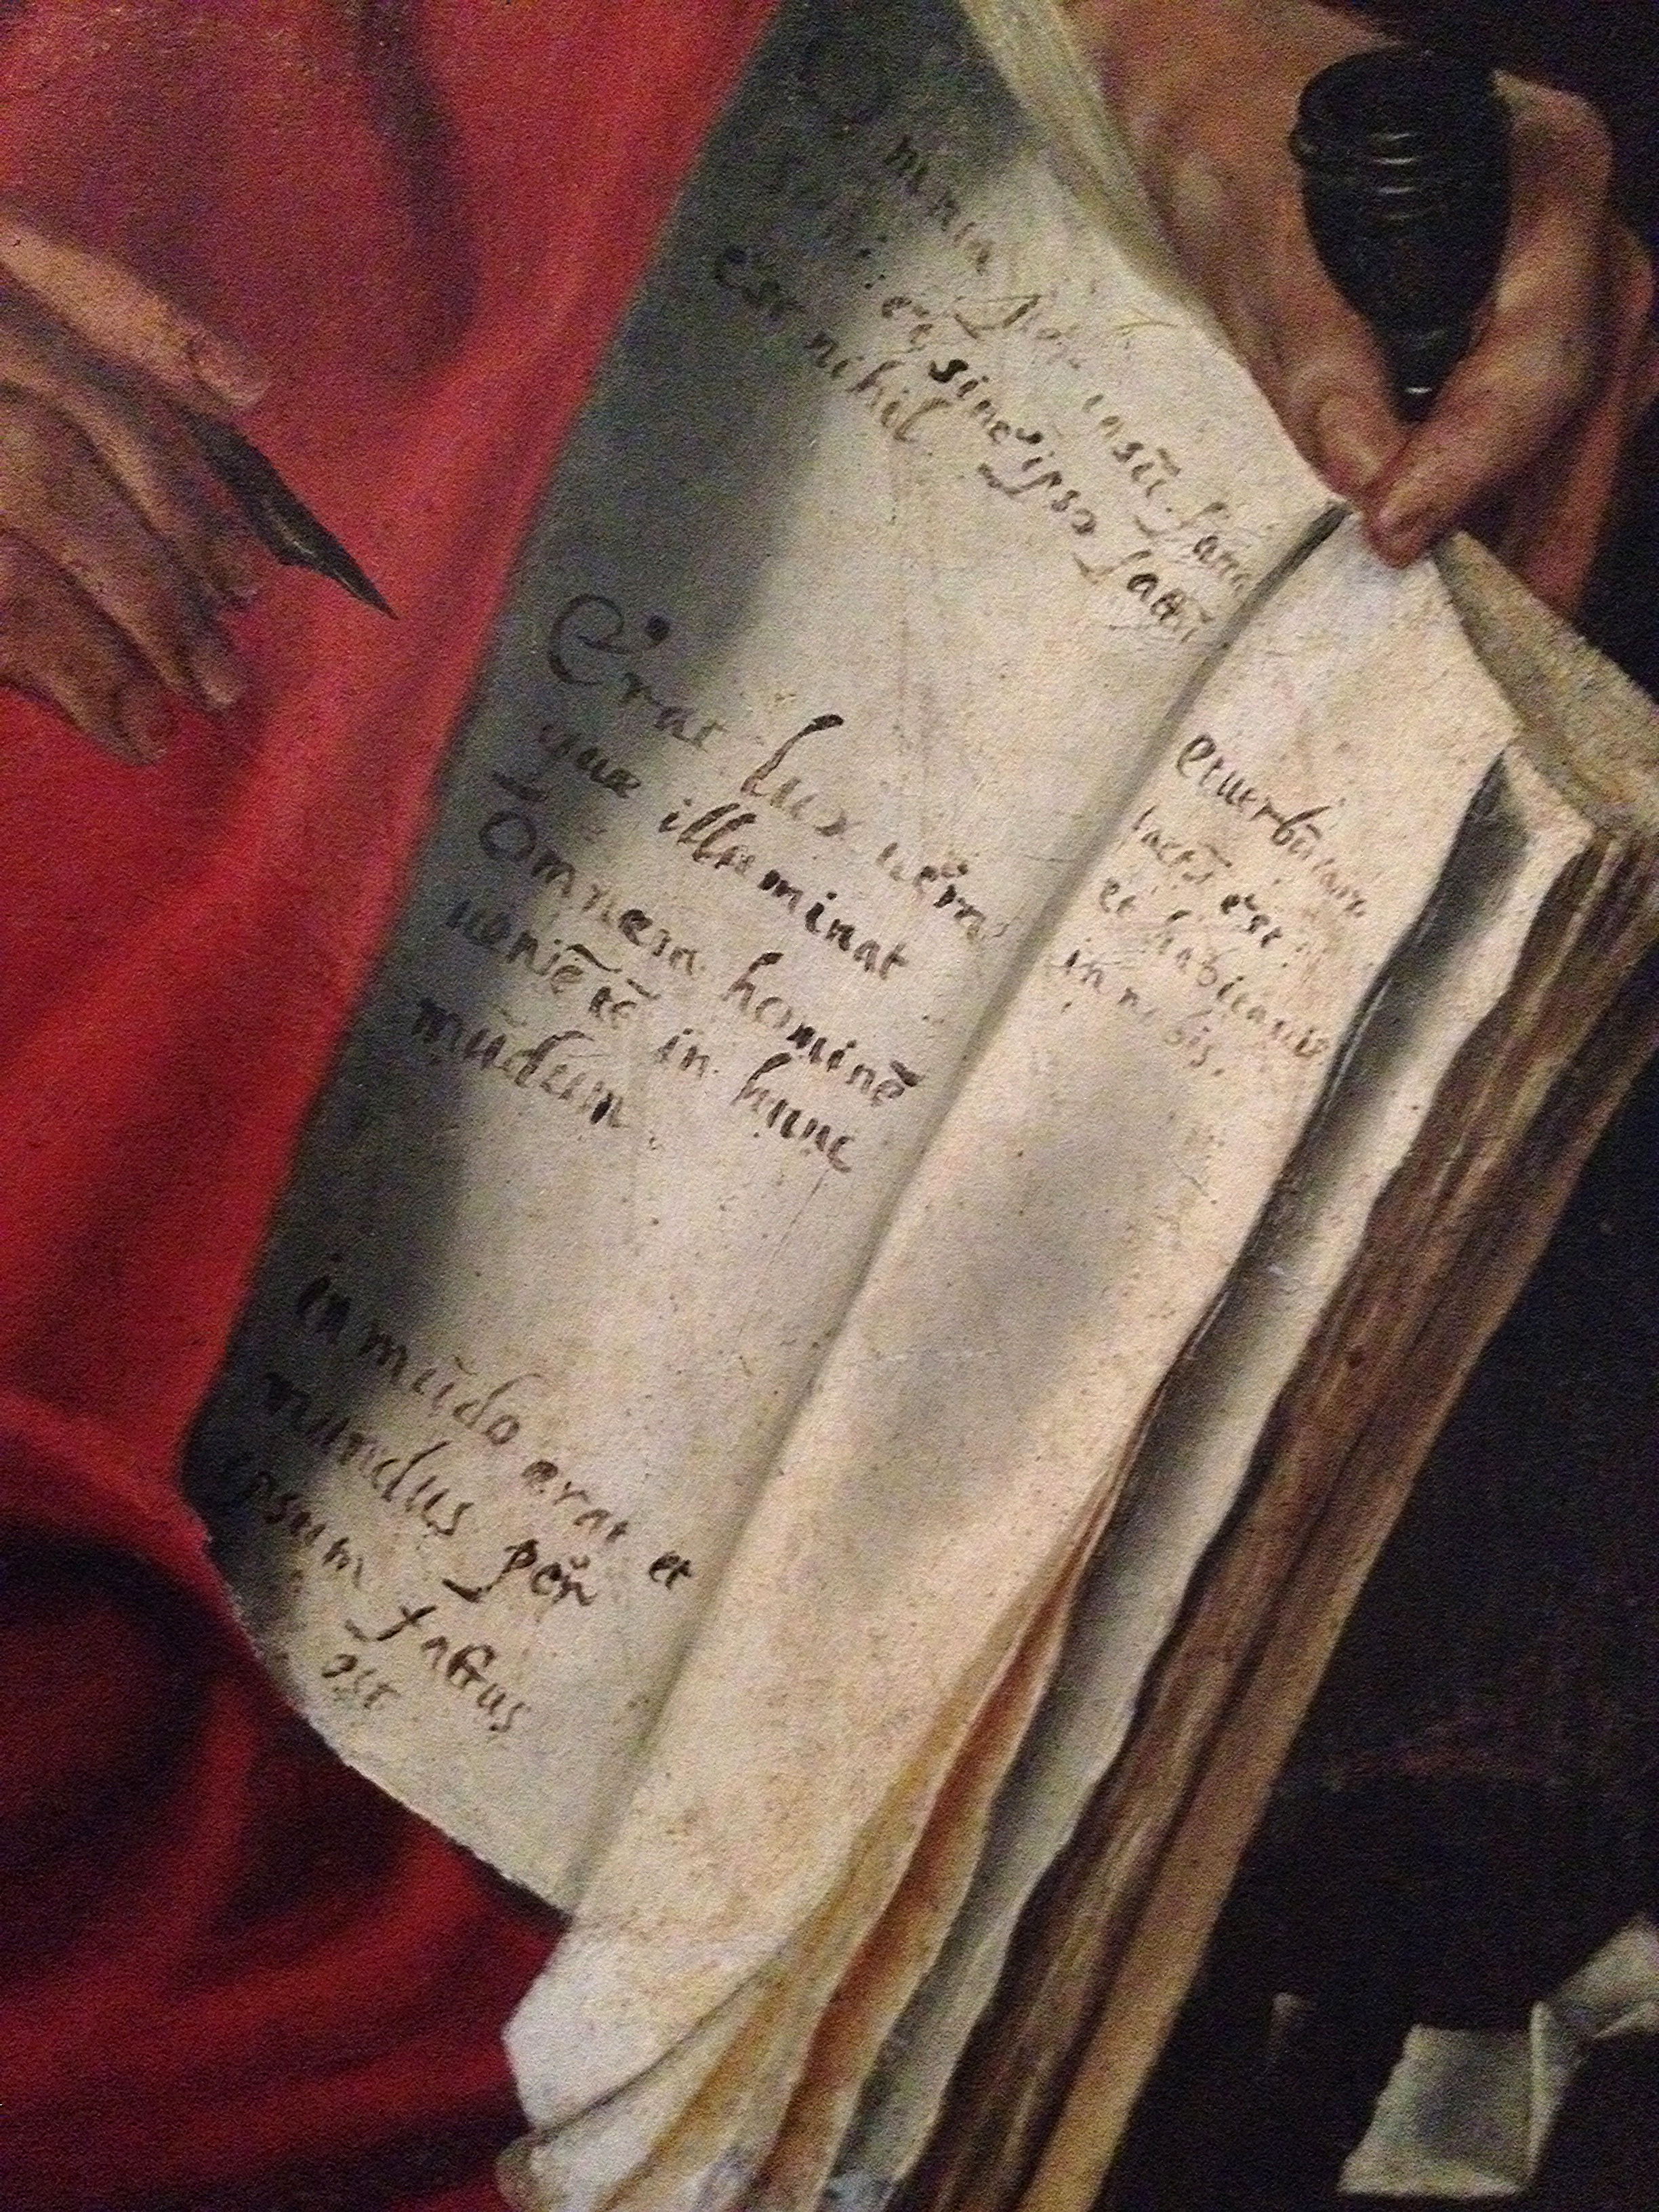 Omnia
insũ facta
et sine ipso factũ
est nihil
Erat lux uera
quæ illuminat
Omnem hominẽ
uoniẽtẽ in hunc
mũdum
in mũdo erat et
mundus per
ipsum factus
est
et uerbũ caro
factũ est
et habitauit
in nobis.